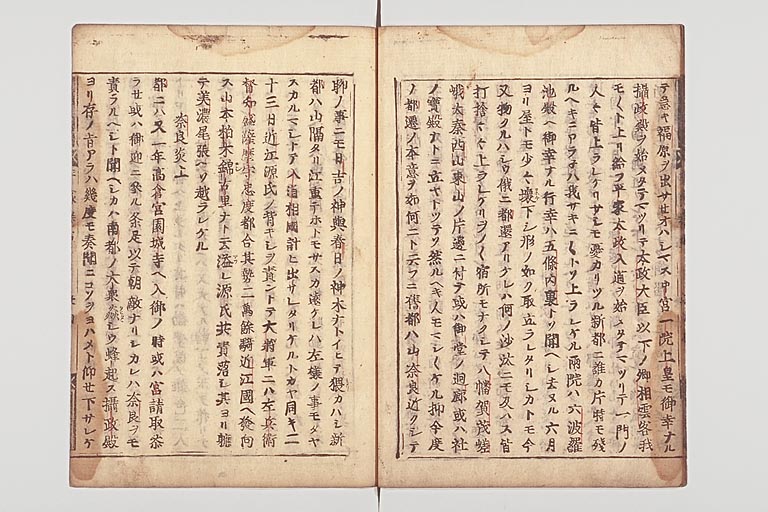 テ急キ福原ヲ出サせオハシマス中宮一院上皇モ御幸ナル
攝政殿ヲ始メタテマツリテ太政大臣以下ノ卿相雲客我
モ〱ト上リ給フ平家太政入道ヲ始メタテマツリテ一門ノ
人々皆上ラレケリサシモ憂カリツル新都ニ誰カ片時モ残
ルヘキニアラネハ我サキニ〱トソ上ラレケル兩院ハ六波羅
池殿ヘ御幸ナル行幸ハ五條内裏トソ聞ヘシ去ヌル六月
ヨリ屋トモ少々壊下シ形ノ如ク取立ラレタリシカトモ今
又物クルハシウ俄ニ都還アリケレハ何ノ沙汰ニモ及ハス皆
打捨々々上ラレケリヲノ〱宿所モナクシテ八幡賀茂嵯
峨太秦西山東山ノ片邊ニ付テ或ハ御堂ノ廻廊或ハ社
ノ寳殿ナトニ立ヤトツテソ然ルヘキ人モマシ〱ケル抑今度
ノ都遷ノ本意ヲ如何ニト云フニ舊都ハ山奈良近クシテ
聊ノ事ニモ日吉ノ神輿春日ノ神木ナトイヒテ猥カハシ新
都ハ山隔タリ江重テホトモサスカ遠ケレハ左樣ノ事モタヤ
スカルマシトテ入道相國計ヒ出サレタリケルトカヤ同キ二
十三日近江源氏ノ背キシヲ責ントテ大将軍ニハ左兵衛
督知盛薩摩守忠度都合其勢二萬餘騎近江國ヘ發向
ス山本柏木錦古里ナト云溢レ源氏共責落シ其ヨリ軈
テ美濃尾張ヘソ越ラレケル
奈良炎上
都ニハ又一年高倉宮園城寺ヘ入御ノ時或ハ宮請取参
ラせ或ハ御迎ニ參ル条是以テ朝敵ナリシカレハ奈良ヲモ
責ラルヘシト聞ヘシカハ南都ノ大衆夥シウ蜂起ス攝政殿
ヨリ存ノ旨アラハ幾度モ奏聞ニコソヲヨハメト仰せ下サレケ